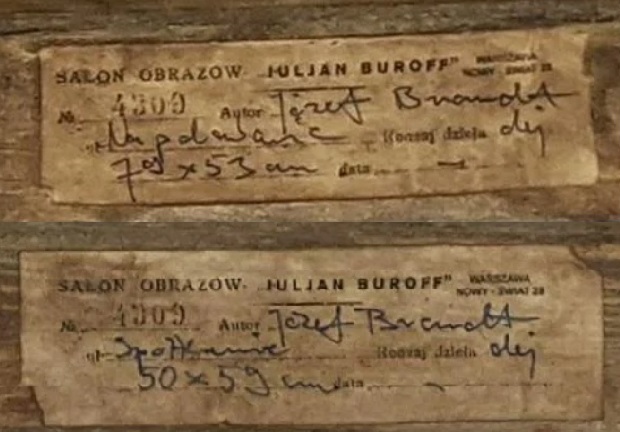 SALON OBRAZÓW „JULJAN BUROFF" WARSZAWA
NOWY-ŚWIAT 23
№ 4309 Autor Józef Brandt
Rodzaj dzieła olej
79 x 53 cm data
SALON OBRAZÓW „JULJAN BUROFF" WARSZAWA
NOWY-ŚWIAT 23
№ 4309 Autor Józef Brandt
Spotkanie Rodzaj dzieła olej
50 x 59 cm data